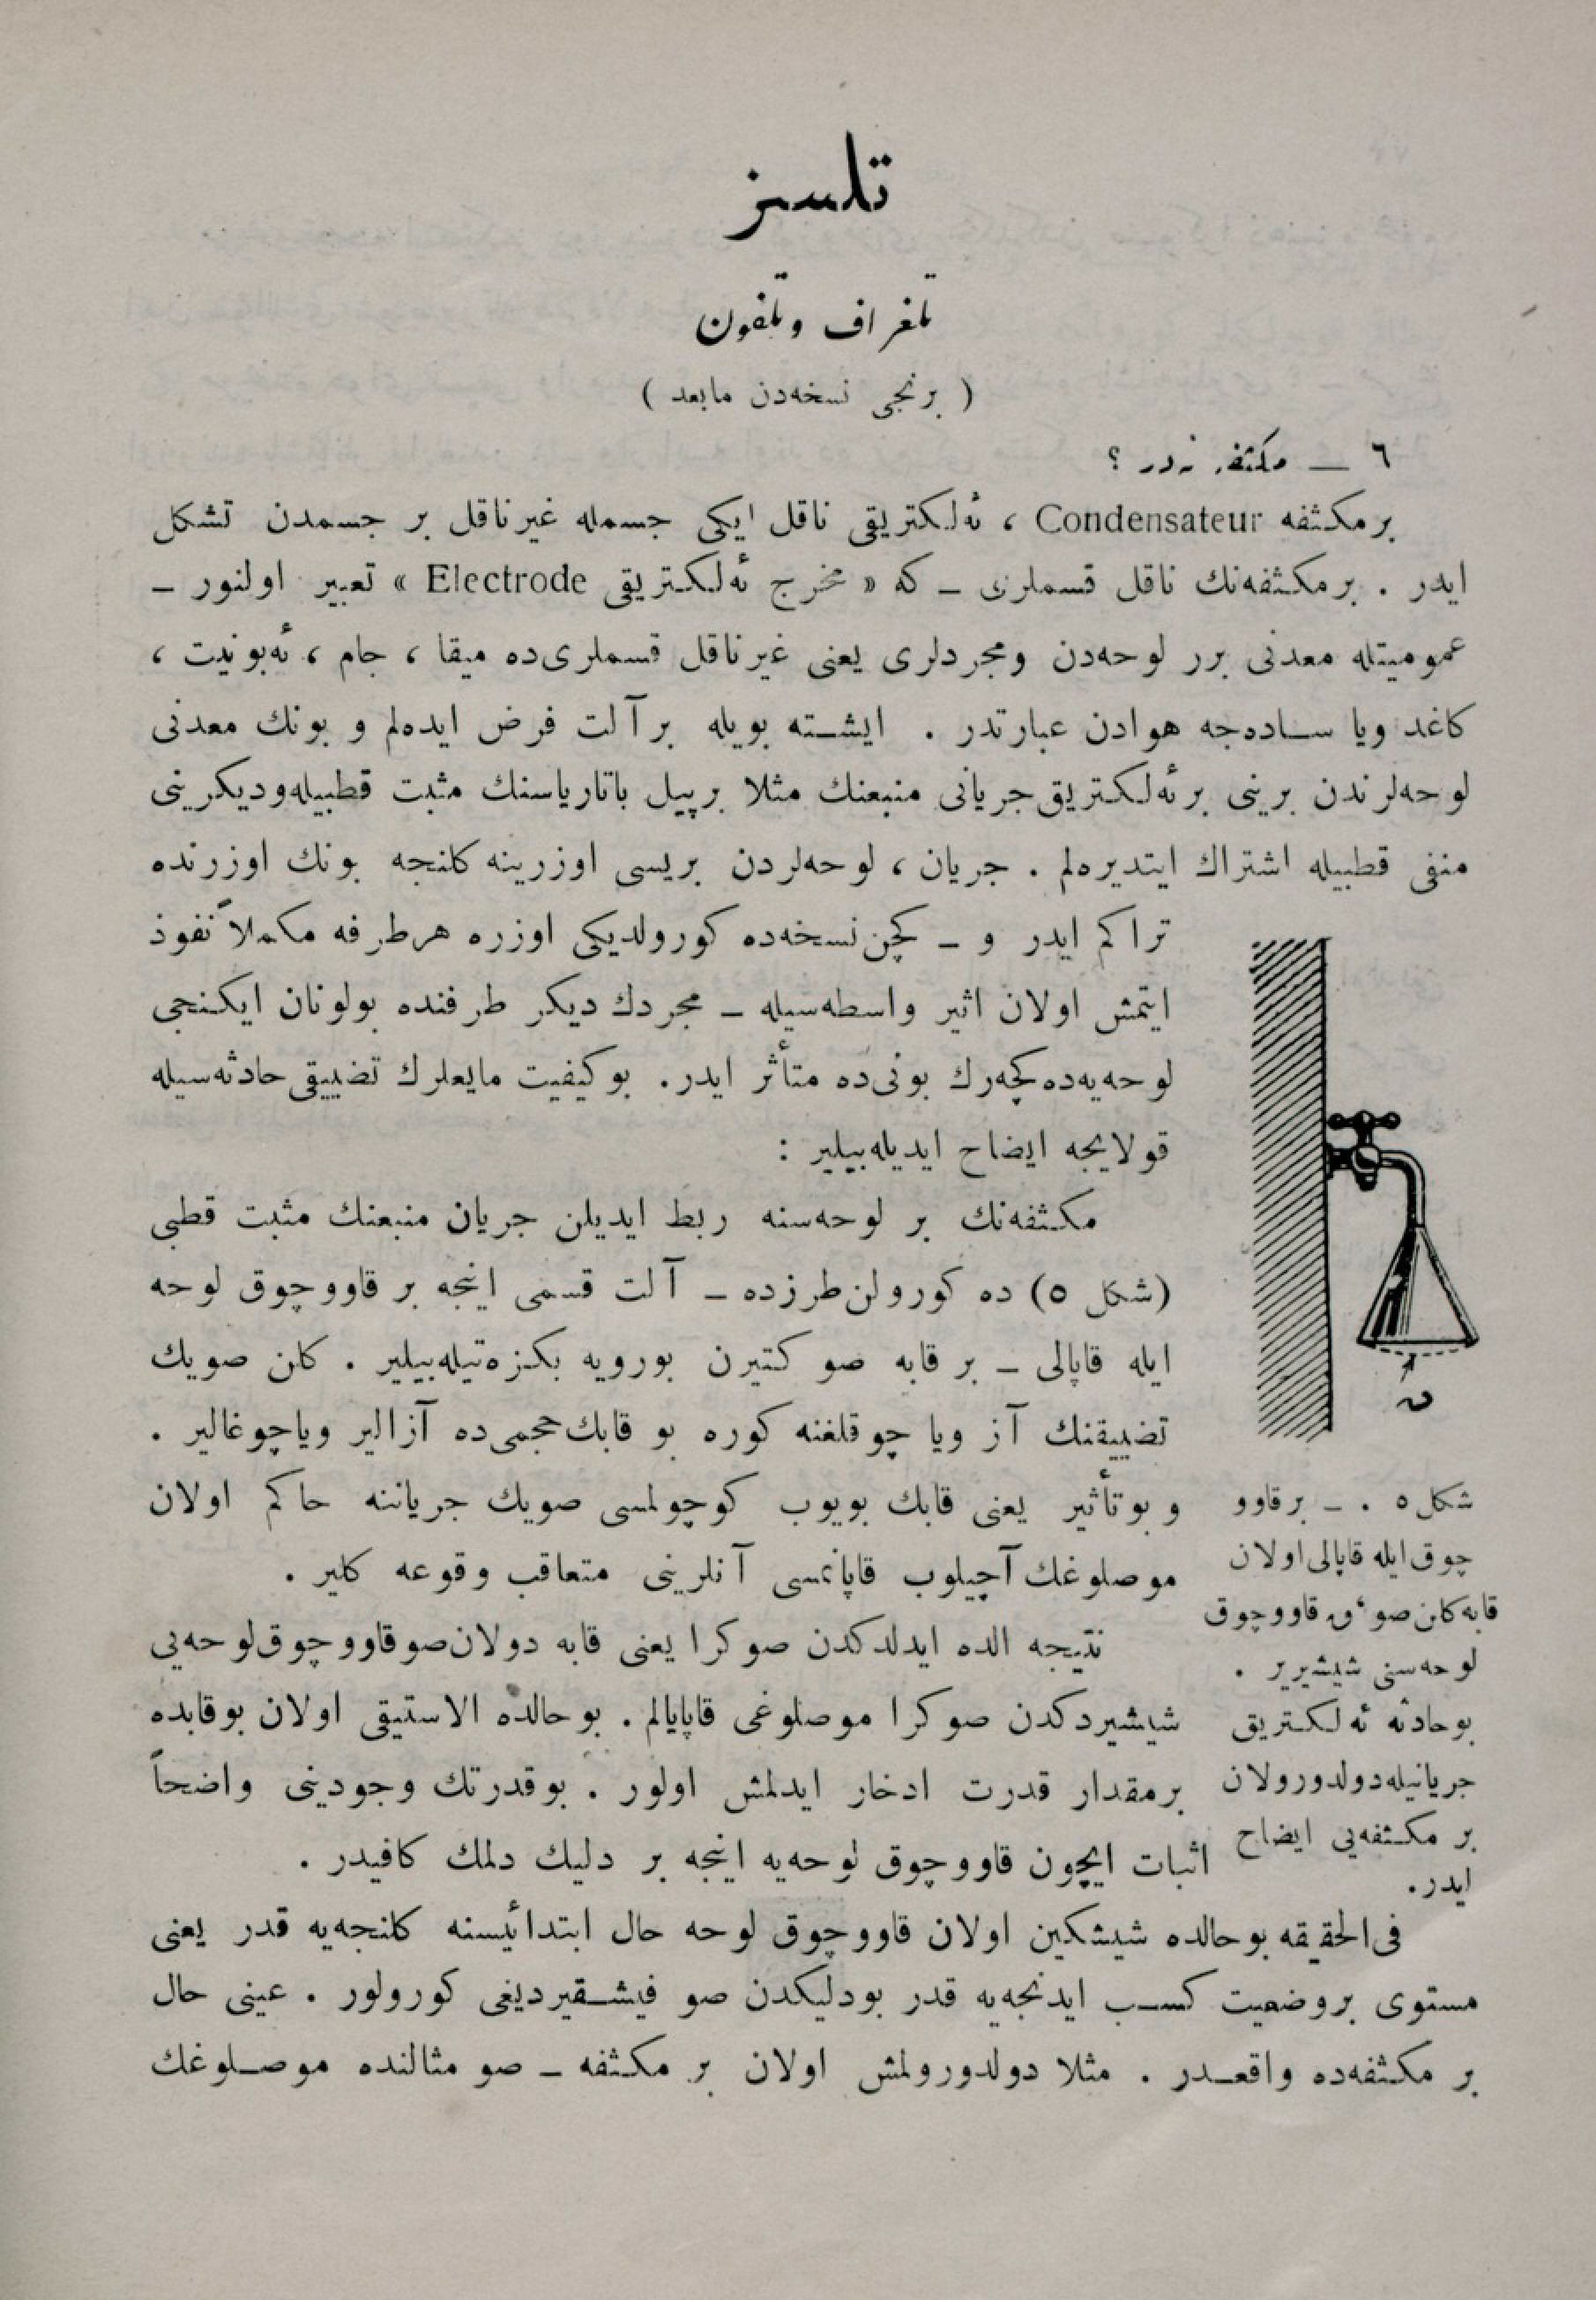 تلسز
تلغراف وتلفون
( برنجی نسخه‌دن مابعد )
٦ — مكثفه نه‌در ؟
برمكثفه Condensateur ، ئه‌لكتریقی ناقل ایكی جسمله غیرناقل بر جسمدن تشكل
ایدر . برمكثفه‌نك ناقل قسملری ـ كه « مخرج ئه‌لكتریقی Electrode » تعبیر اولنور ـ
عمومیتله معدنی برر لوحه‌دن ومجردلری یعنی غیرناقل قسملری‌ده میقا ، جام ، ئه‌بونیت ،
كاغد ویا ساده‌جه هوادن عبارتدر . ایشته بویله برآلت فرض ایده‌لم و بونك معدنی
لوحه‌لرندن برینی برئه‌لكتریق‌جریانی منبعنك مثلا برپیل باتاریاسنك مثبت قطبیله‌ودیكرینی
منفی قطبیله اشتراك ایتدیره‌لم . جریان ، لوحه‌لردن بریسی اوزرینه كلنجه بونك اوزرنده
تراكم ایدر و ـ كچن‌نسخه‌ده كورولدیكی اوزره هرطرفه مكملاً نفوذ
ایتمش اولان اثیر واسطه‌سیله ـ مجردك دیكر طرفنده بولونان ایكنجی
لوحه‌یه‌ده‌كچه‌رك بونی‌ده متأثر ایدر. بوكیفیت مایعلرك تضییقی‌حادثه‌سیله
قولایجه ایضاح ایدیله‌بیلیر :
مكثفه‌نك بر لوحه‌سنه ربط ایدیلن جریان منبعنك مثبت قطبی
(شكل ٥) ده كورولن‌طرزده ـ آلت قسمی اینجه بر قاووچوق لوحه
ایله قاپالی ـ بر قابه صو كتیرن بورویه بكزه‌تیله‌بیلیر . كلن صویك
تضییقنك آز ویا چوقلغنه كوره بو قابك‌حجمی‌ده آزالیر ویاچوغالیر .
و بوتأثیر یعنی قابك بویوب كوچولمسی صویك جریاننه حاكم اولان
موصلوغك آچیلوب قاپانمسی آنلرینی متعاقب وقوعه كلیر .
نتیجه الده ایدلدكدن صوكرا یعنی قابه دولان‌صوقاووچوق‌لوحه‌یی
شیشیردكدن صوكرا موصلوغی قاپایالم . بوحالده الاستیقی اولان بوقابده
برمقدار قدرت ادخار ایدلمش اولور . بوقدرتك وجودینی واضحاً
اثبات ایچون قاووچوق لوحه‌یه اینجه بر دلیك دلمك كافیدر .
ن
شكل ٥ . ـ برقاوو
چوق‌ایله قاپالی‌اولان
قابه‌كلن‌صو، ن قاووچوق
لوحه‌سنی شیشیریر .
بوحادثه ئه‌لكتریق
جریانیله‌دولدورولان
بر مكثفه‌یی ایضاح
ایدر.
فی‌الحقیقه بوحالده شیشكین اولان قاووچوق لوحه حال ابتدائیسنه كلنجه‌یه قدر یعنی
مستوی بروضعیت كسب ایدنجه‌یه قدر بودلیكدن صو فیشقیردیغی كورولور . عینی حال
بر مكثفه‌ده واقعدر . مثلا دولدورولمش اولان بر مكثفه ـ صو مثالنده موصلوغك